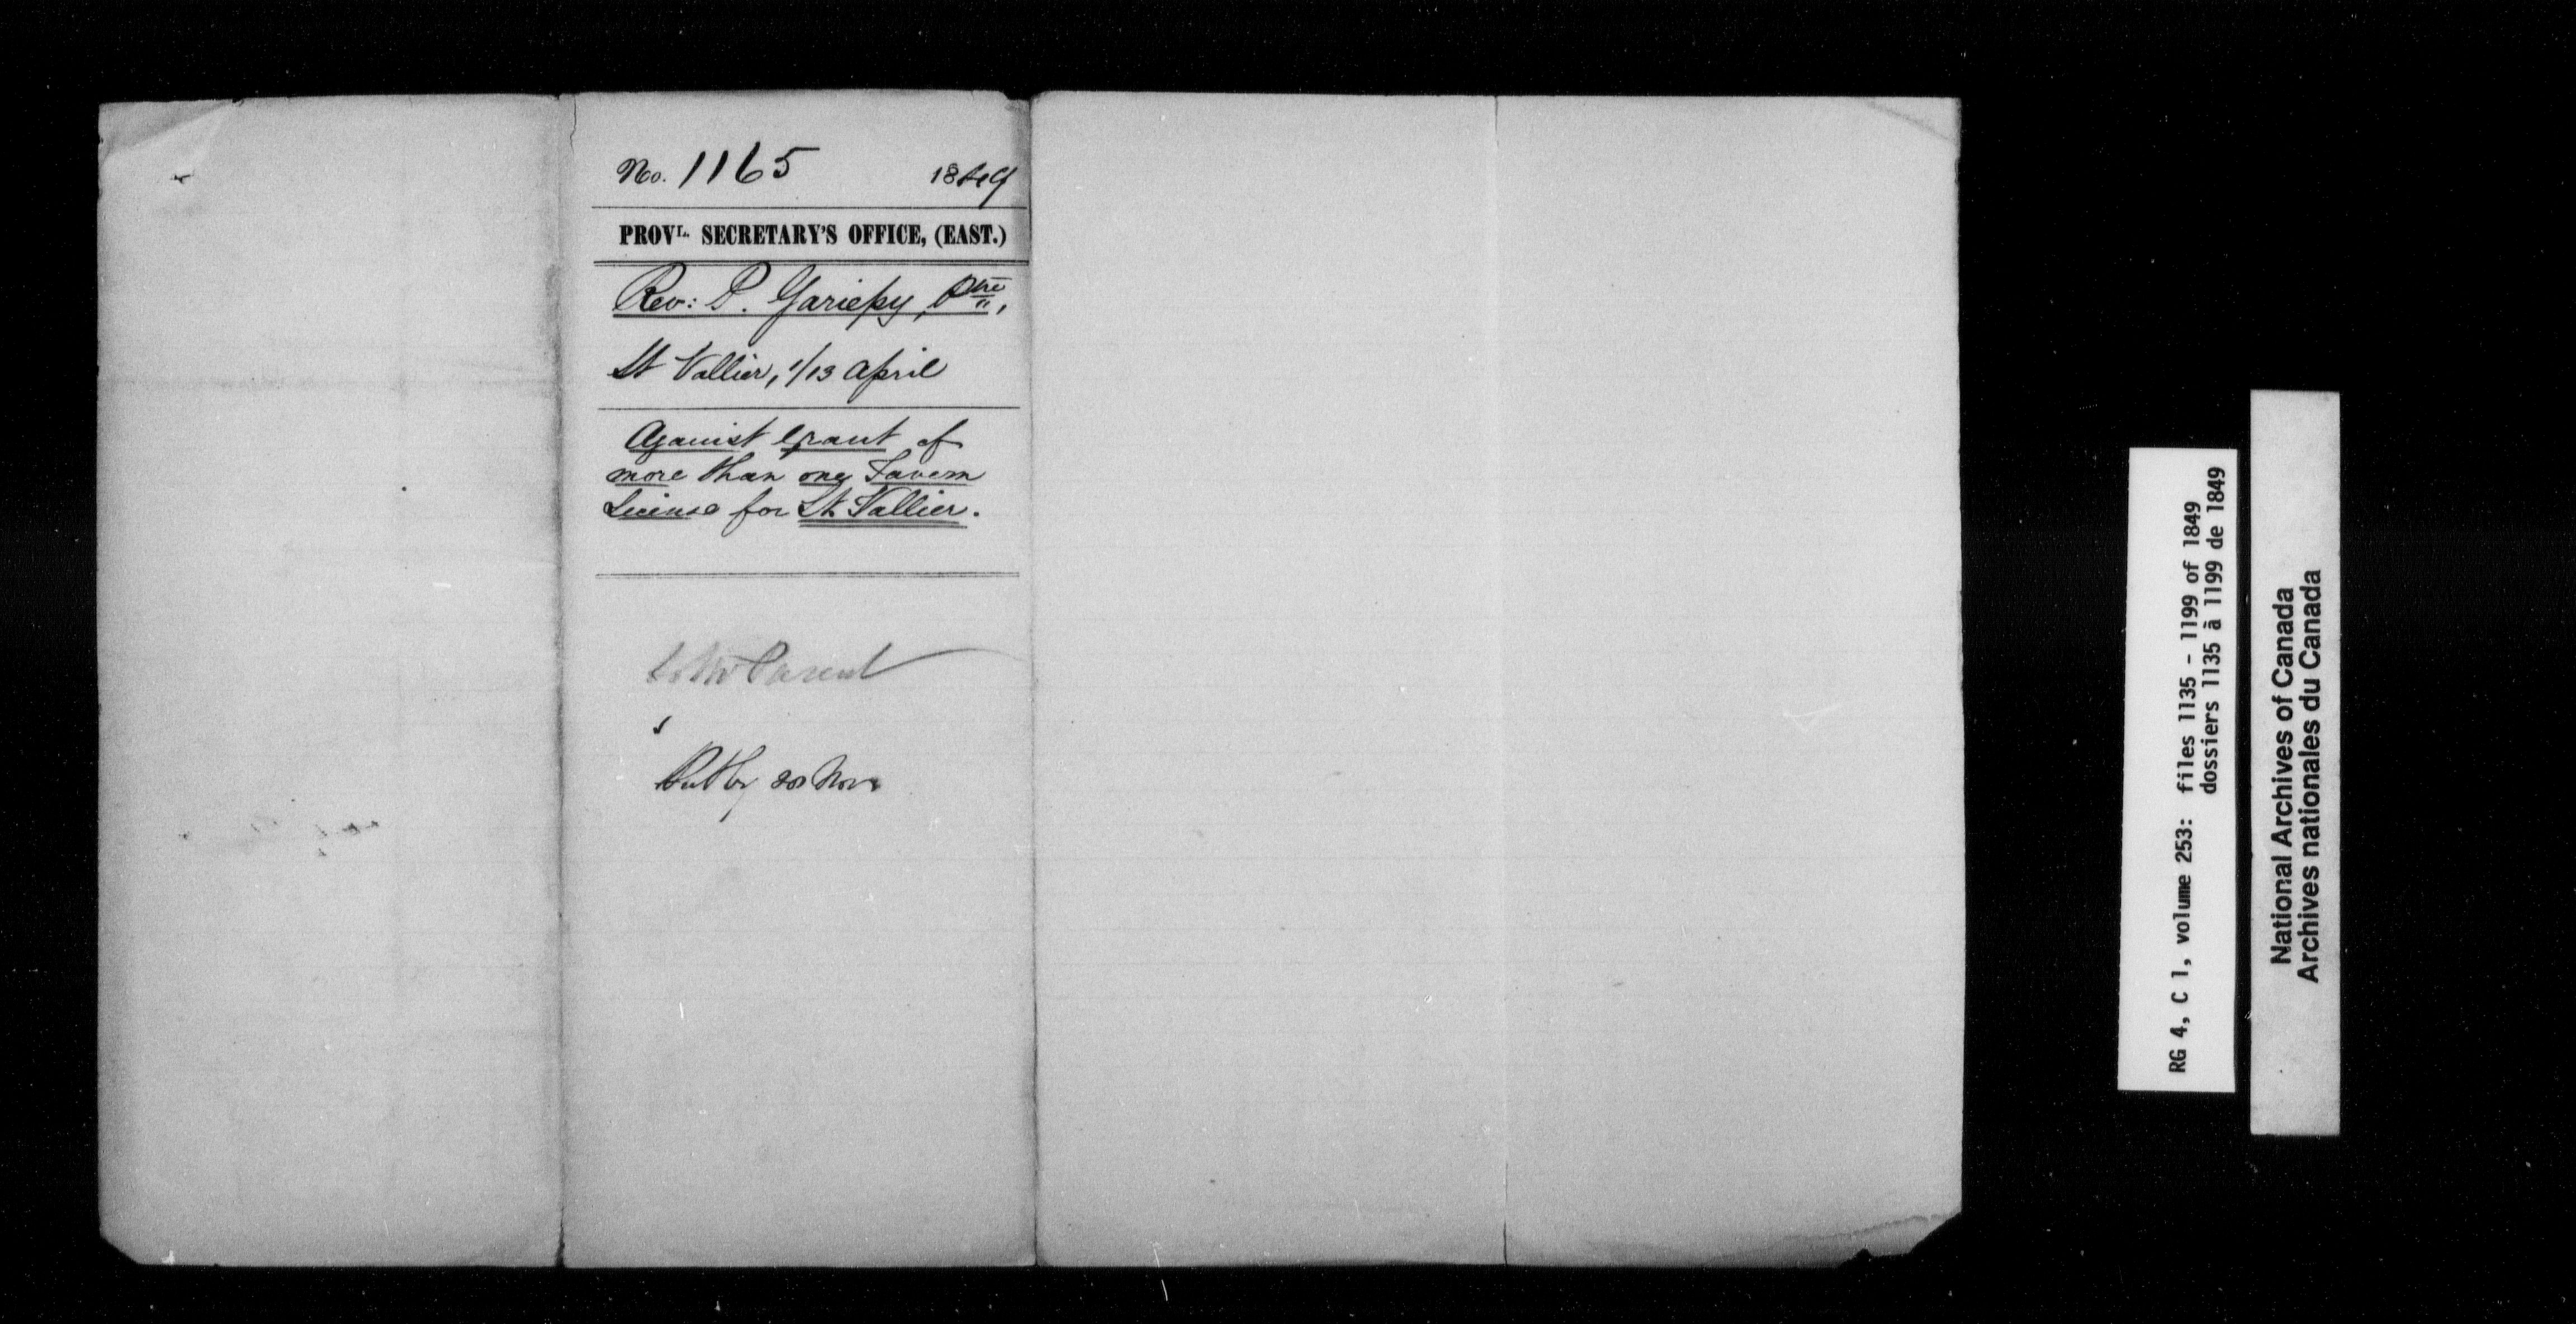 No. 1165 1849
PROVL. SECRETARY'S OFFICE, (EAST.)
Rev: P. Gariepy, Ptre,
St Vallier, 1/13 April
Against Grant of
more than one Tavern
License for St Vallier.
Mr Parent
Put by 20 Nov.
RG 4, C 1, volume 253: files 1135 - 1199 of 1849
dossiers 1135 à 1199 de 1849
National Archives of Canada
Archives nationales du Canada